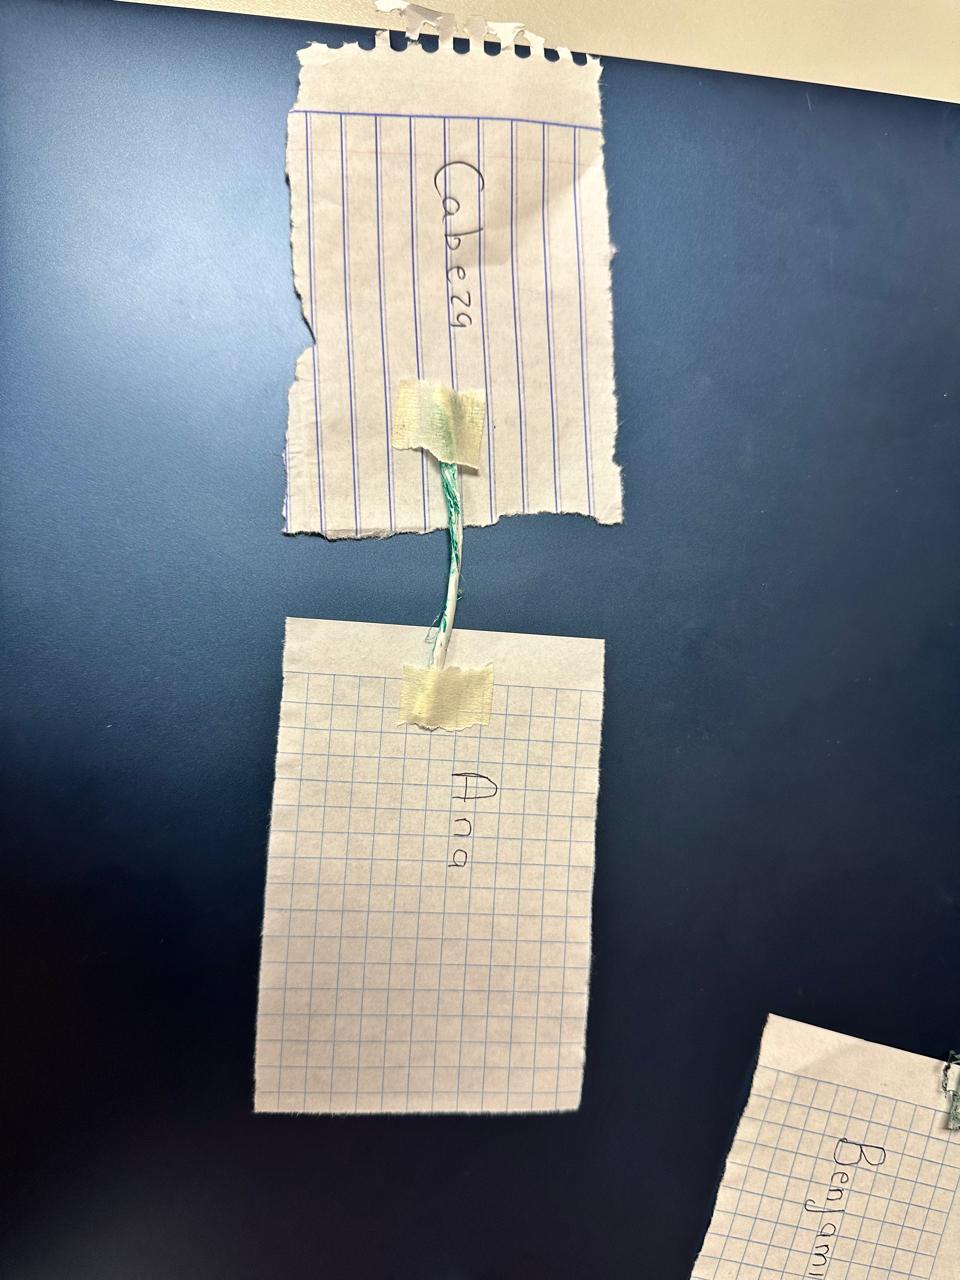 Cabeza
Ana
Benjami